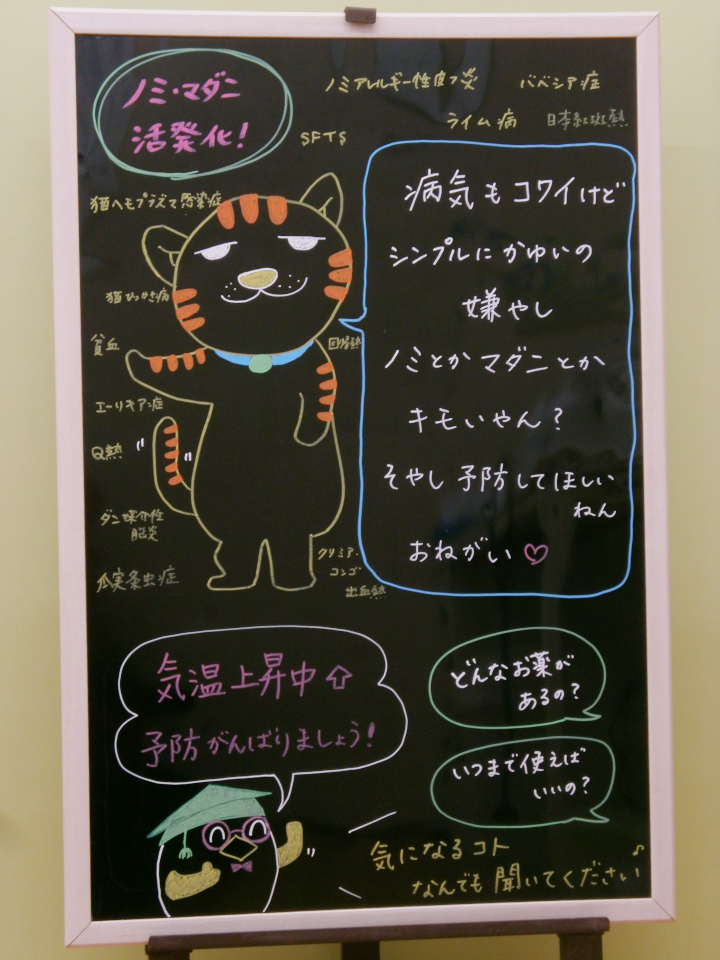 ノミ・マダニ
活発化!
ノミアレルギー性皮フ炎
バベシア症
ライム病
日本紅斑熱
SFTS
猫ヘモプラズマ感染症
猫ひっかき病
貧血
回帰熱
エーリキア症
Q熱
ダニ媒介性
脳炎
瓜実条虫症
クリミア・
コンゴ
出血熱
病気もコワイけど
シンプルにかゆいの
嫌やし
ノミとかマダニとか
キモいやん?
そやし予防してほしい
ねん
おねがい♡
気温上昇中⇧
予防がんばりましょう!
どんなお薬が
あるの?
いつまで使えば
いいの?
気になるコト
なんでも聞いてください♪